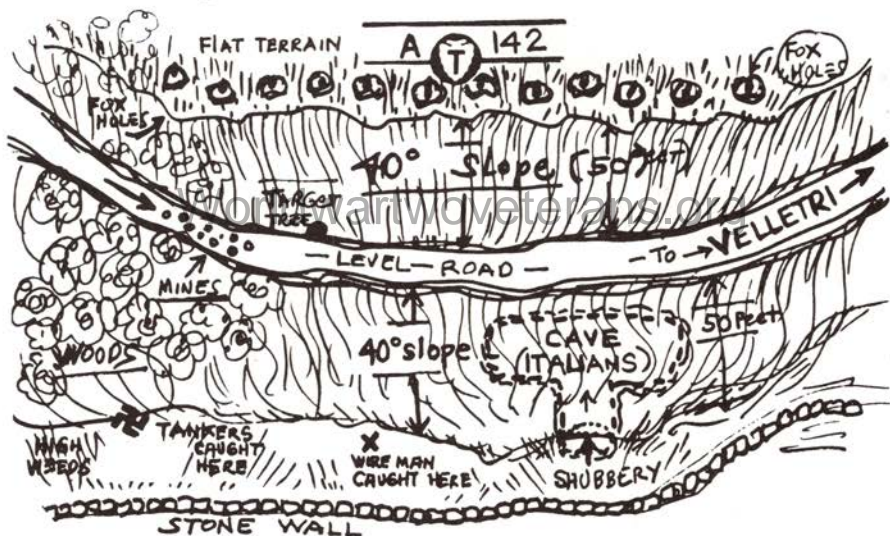 FLAT TERRAIN
A T 142
FOX HOLES
FOX HOLES
40° Slope (50 FEET)
worldwartwoveterans.org
TARGET TREE
LEVEL ROAD
TO → VELLETRI
MINES
WOODS
40° slope
CAVE (ITALIANS)
50 Feet
HIGH WEEDS
TANKERS CAUGHT HERE
X
WIRE MAN CAUGHT HERE
SHUBBERY
STONE WALL